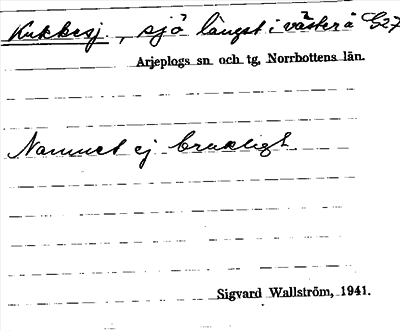 Kukkesj., sjö längst i väster å C27
Arjeplogs sn. och tg, Norrbottens län.
Namnet ej brukligt.
Sigvard Wallström, 1941.